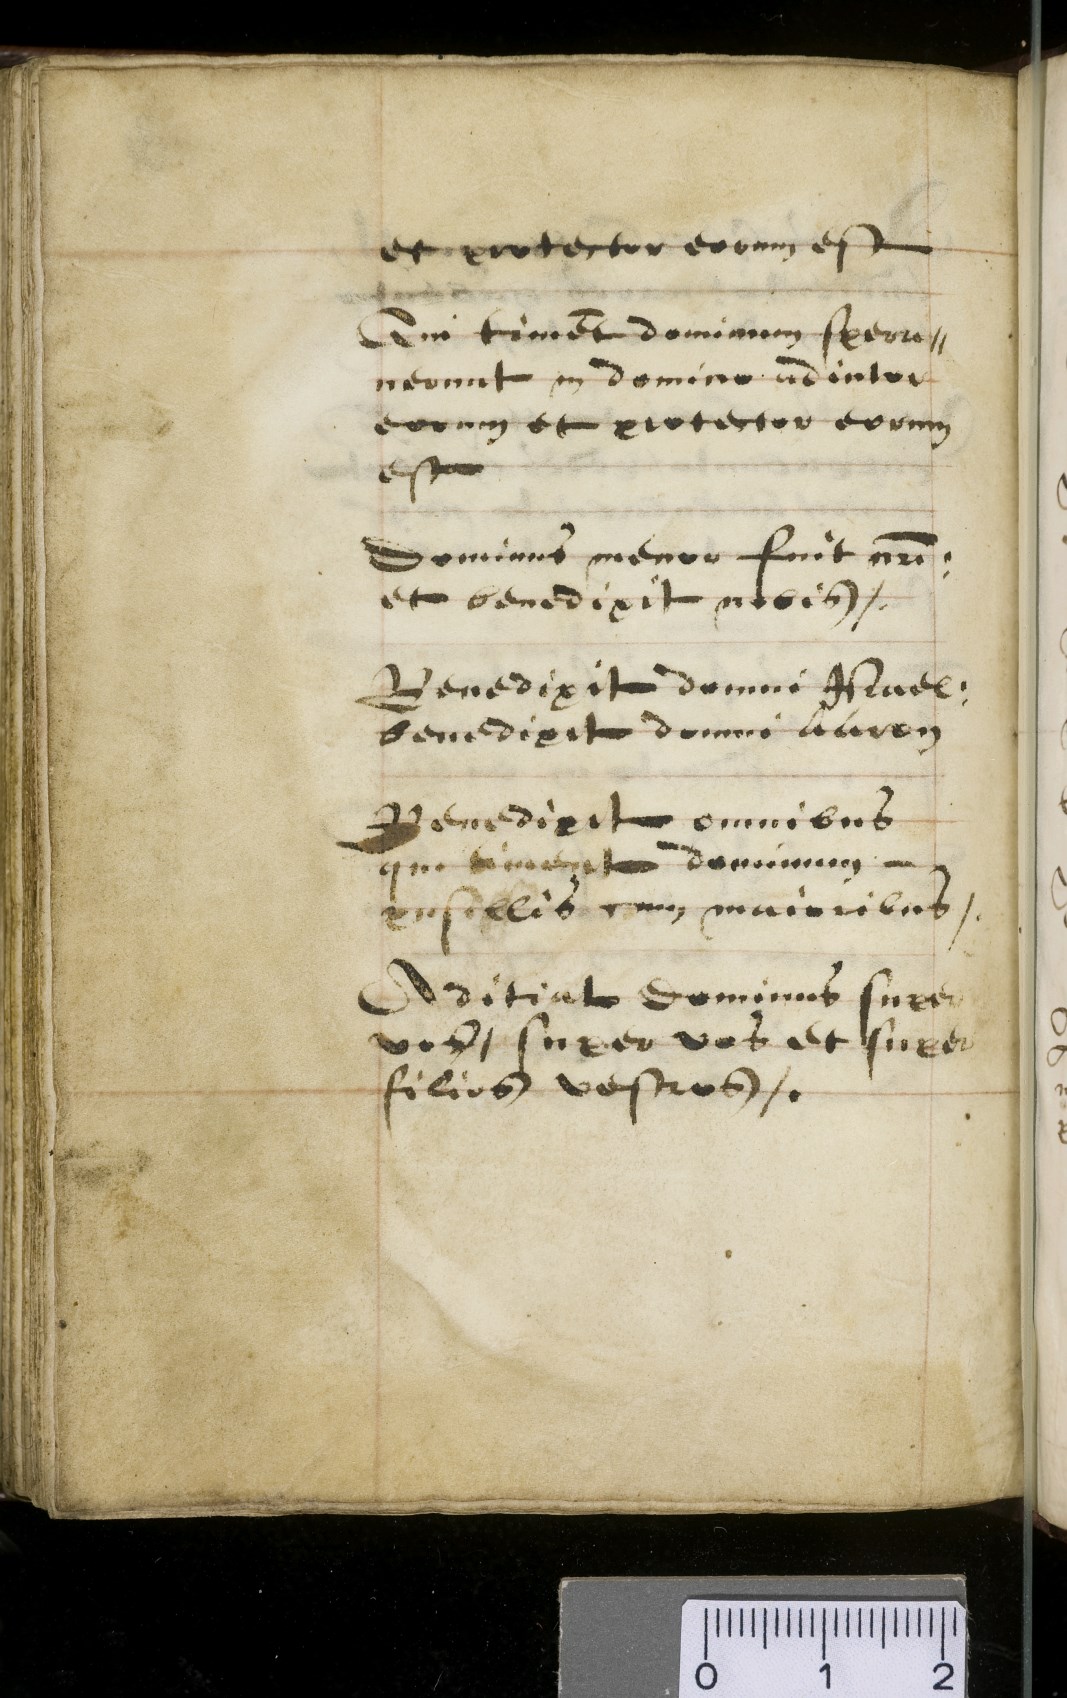 et protector eorum est
Qui timēt dominum sperā//
uerunt in domino adiutor
eorum et protector eorum
est
Dominus memor fuit nrī:
et benedixit nobis/.
Benedixit domui Israel:
benedixit domui aaron
Benedixit omnibus
qui timent dominum
pusillis cum maioribus/.
Aditiat dominus super
vos/ super vos et super
filios vestros/.
0 1 2